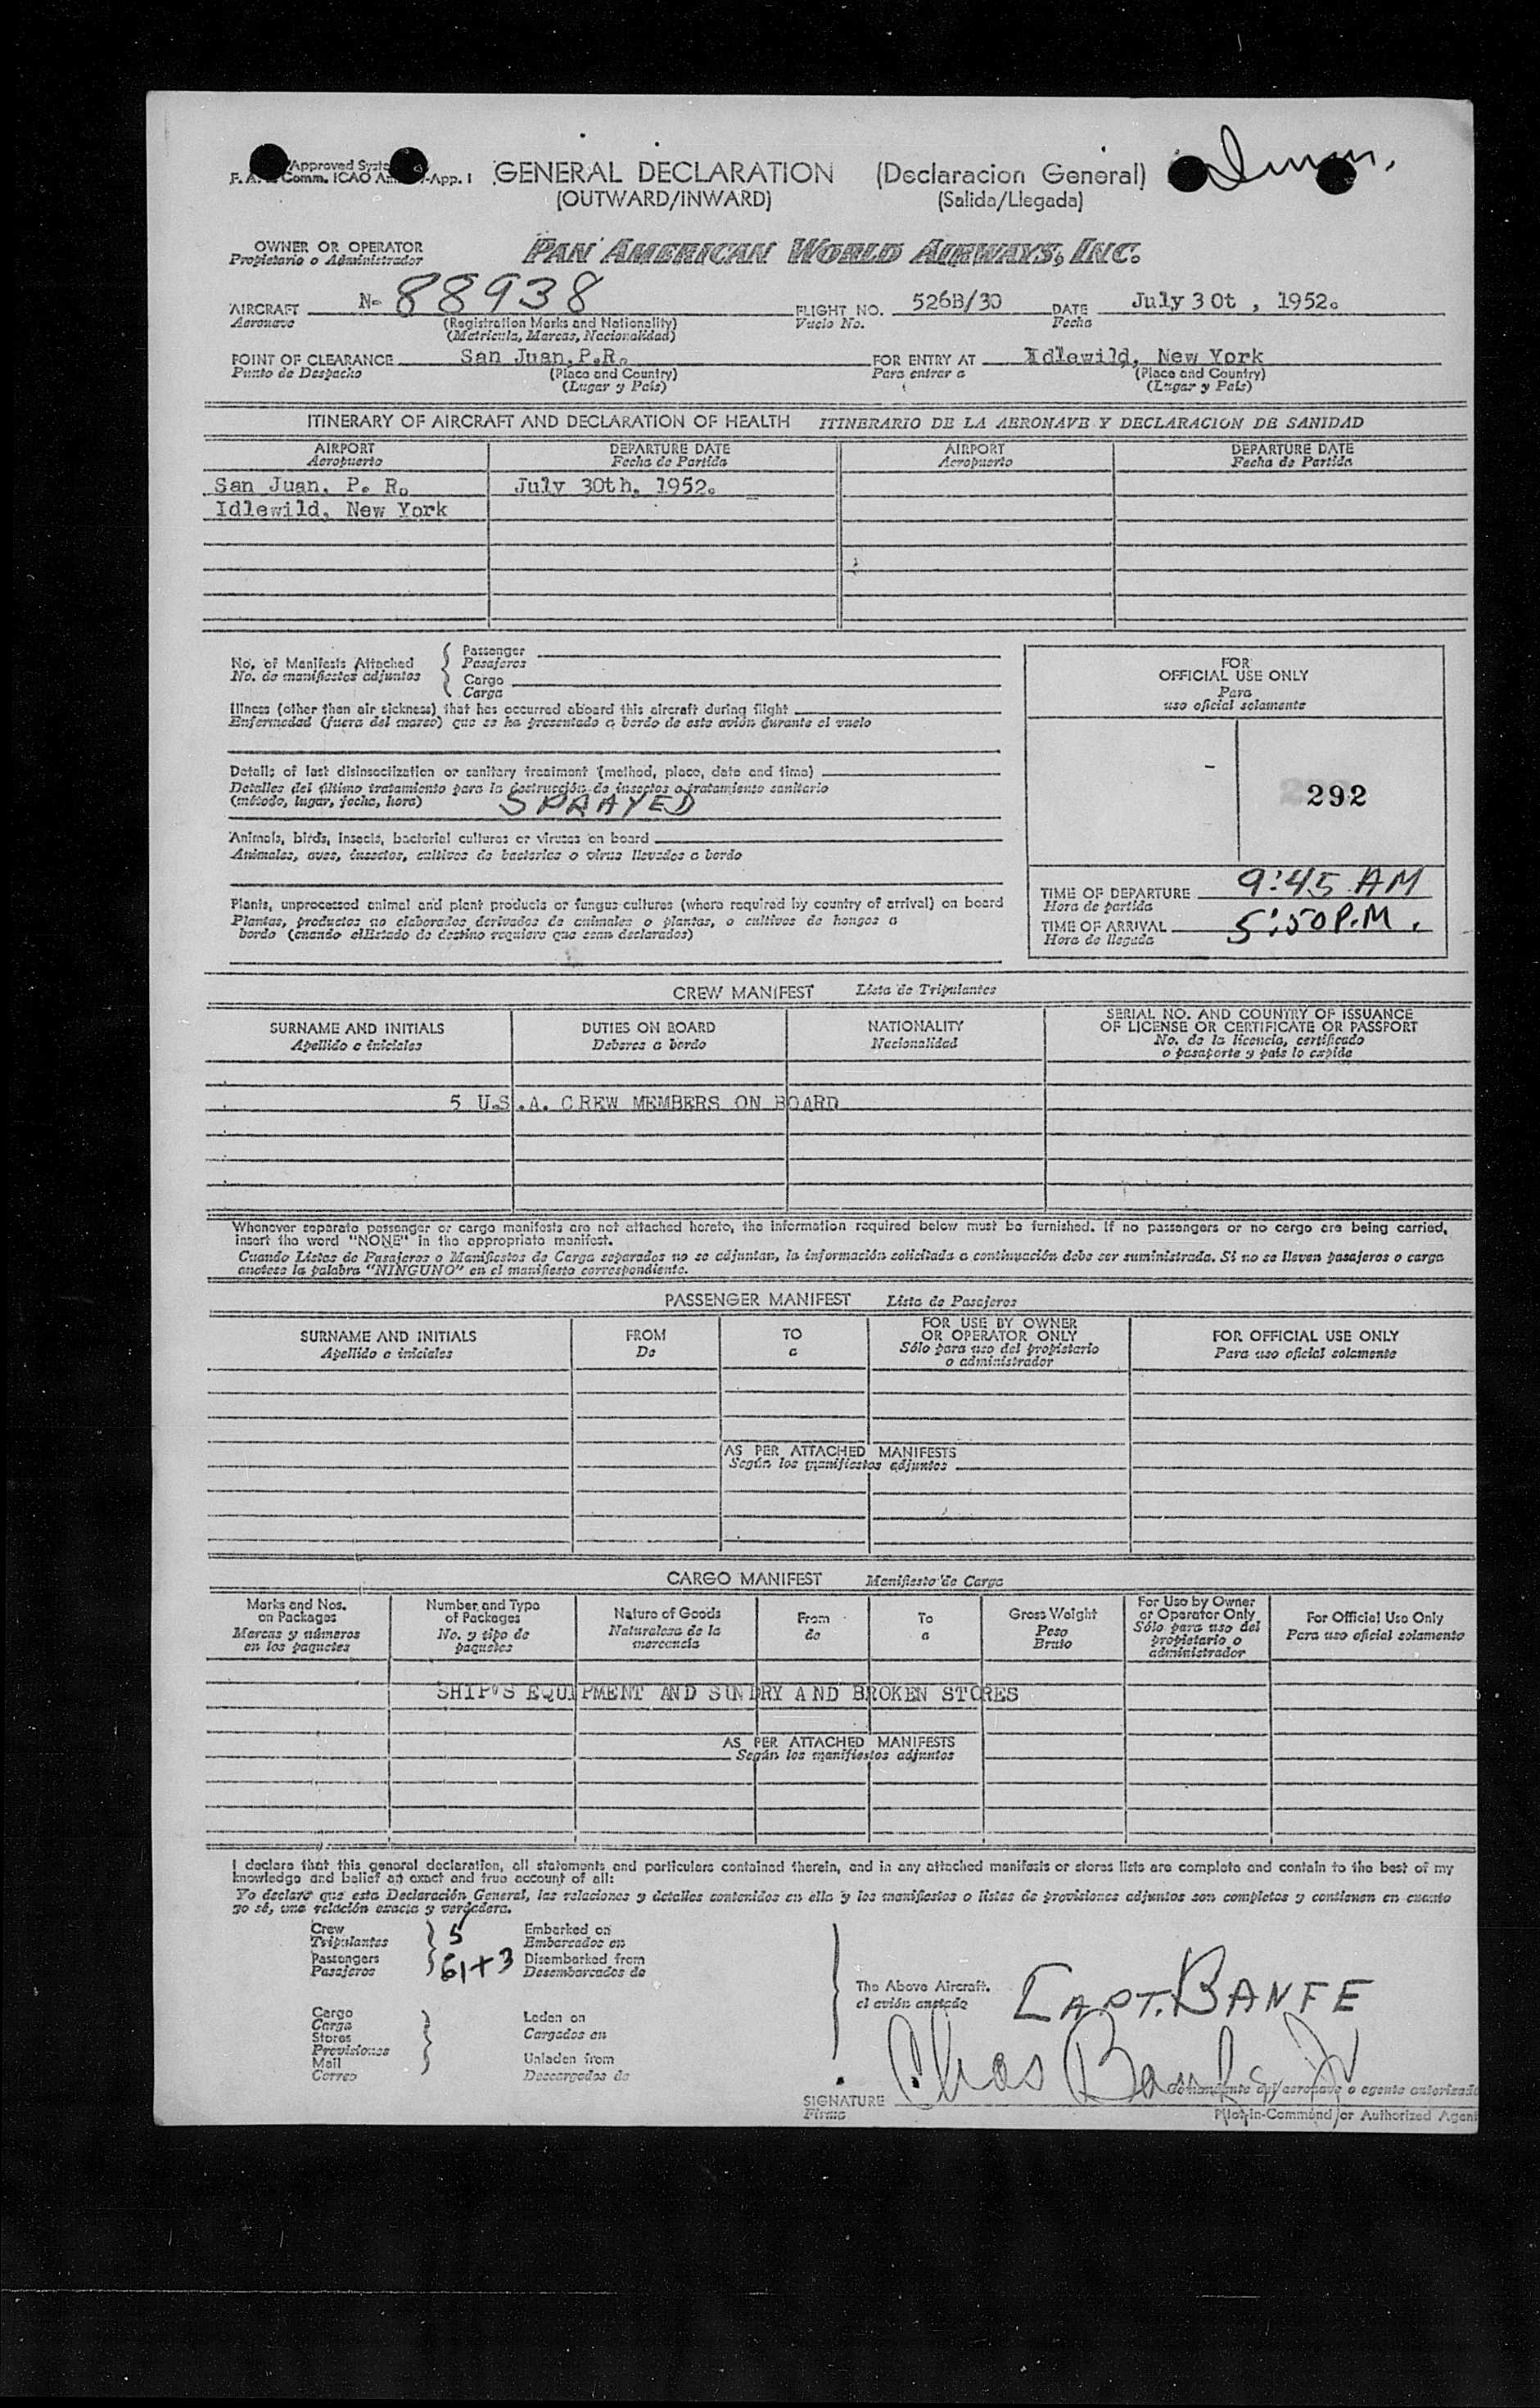 Approved Syste
F. A. Comm. ICAO An -App. 1
GENERAL DECLARATION (Declaracion General)
(OUTWARD/INWARD) (Salida/Llegada)
OWNER OR OPERATOR PAN AMERICAN WORLD AIRWAYS, INC.
Propietario o Administrador
AIRCRAFT N- 88938 FLIGHT NO. 526B/30 DATE July 3 0t , 1952.
Aeronave (Registration Marks and Nationality) Vuelo No. Fecha
(Matricula, Marcas, Nacionalidad)
POINT OF CLEARANCE San Juan, P.R. FOR ENTRY AT Idlewild, New York
Punto de Despacho (Place and Country) Para entrar a (Place and Country)
(Lugar y País) (Lugar y País)
ITINERARY OF AIRCRAFT AND DECLARATION OF HEALTH ITINERARIO DE LA AERONAVE Y DECLARACION DE SANIDAD
AIRPORT DEPARTURE DATE AIRPORT DEPARTURE DATE
Aeropuerto Fecha de Partida Aeropuerto Fecha de Partida
San Juan, P. R. July 30th, 1952.
Idlewild, New York
No. of Manifests Attached
No. de manifiestos adjuntos
Passenger
Pasajeros
Cargo
Carga
Illness (other than air sickness) that has occurred aboard this aircraft during flight
Enfermedad (fuera del mareo) que se ha presentado a bordo de este avión durante el vuelo
Details of last disinsectization or sanitary treatment (method, place, date and time)
Detalles del último tratamiento para la destrucción de insectos o tratamiento sanitario
(método, lugar, fecha, hora) SPRAYED
Animals, birds, insects, bacterial cultures or viruses on board
Animales, aves, insectos, cultivos de bacterias o virus llevados a bordo
Plants, unprocessed animal and plant products or fungus cultures (where required by country of arrival) on board
Plantas, productos no elaborados derivados de animales o plantas, o cultivos de hongos a
bordo (cuando elEstado de destino requiera que sean declarados)
FOR
OFFICIAL USE ONLY
Para
uso oficial solamente
292
TIME OF DEPARTURE 9:45 AM
Hora de partida
TIME OF ARRIVAL 5:50 P.M.
Hora de llegada
CREW MANIFEST Lista de Tripulantes
SURNAME AND INITIALS DUTIES ON BOARD NATIONALITY SERIAL NO. AND COUNTRY OF ISSUANCE
OF LICENSE OR CERTIFICATE OR PASSPORT
Apellido e iniciales Deberes a bordo Nacionalidad No. de la licencia, certificado
o pasaporte y país lo expide
5 U.S.A. CREW MEMBERS ON BOARD
Whenever separate passenger or cargo manifests are not attached hereto, the information required below must be furnished. If no passengers or no cargo are being carried,
insert the word "NONE" in the appropriate manifest.
Cuando Listas de Pasajeros o Manifiestos de Carga separados no se adjuntan, la información solicitada a continuación debe ser suministrada. Si no se lleven pasajeros o carga
anotese la palabra "NINGUNO" en el manifiesto correspondiente.
PASSENGER MANIFEST Lista de Pasajeros
SURNAME AND INITIALS FROM TO FOR USE BY OWNER
OR OPERATOR ONLY FOR OFFICIAL USE ONLY
Apellido e iniciales De a Sólo para uso del propietario
o administrador Para uso oficial solamente
AS PER ATTACHED MANIFESTS
Según los manifiestos adjuntos
CARGO MANIFEST Manifiesto de Carga
Marks and Nos.
on Packages
Marcas y números
en los paquetes
Number and Type
of Packages
No. y tipo de
paquetes
Nature of Goods
Naturaleza de la
mercancia
From
de
To
a
Gross Weight
Peso
Bruto
For Use by Owner
or Operator Only
Sólo para uso del
propietario o
administrador
For Official Use Only
Para uso oficial solamente
SHIP'S EQUIPMENT AND SUNDRY AND BROKEN STORES
AS PER ATTACHED MANIFESTS
Según los manifiestos adjuntos
I declare that this general declaration, all statements and particulars contained therein, and in any attached manifests or stores lists are complete and contain to the best of my
knowledge and belief an exact and true account of all:
Yo declaro que esta Declaración General, las relaciones y detalles contenidos en ella y los manifiestos o listas de provisiones adjuntos son completos y contienen en cuanto
yo sé, una relación exacta y verdadera.
Crew
Tripulantes 5
Passengers
Pasajeros 61+3
Embarked on
Embarcados en
Disembarked from
Desembarcados de
Cargo
Carga
Stores
Provisiones
Mail
Correo
Laden on
Cargados en
Unladen from
Descargados de
The Above Aircraft.
el avión anotado
CAPT. BANFE
SIGNATURE Chas Banfe Jr
Firma
Comandante del aeronave o agente autorizado
Pilot-in-Command or Authorized Agent